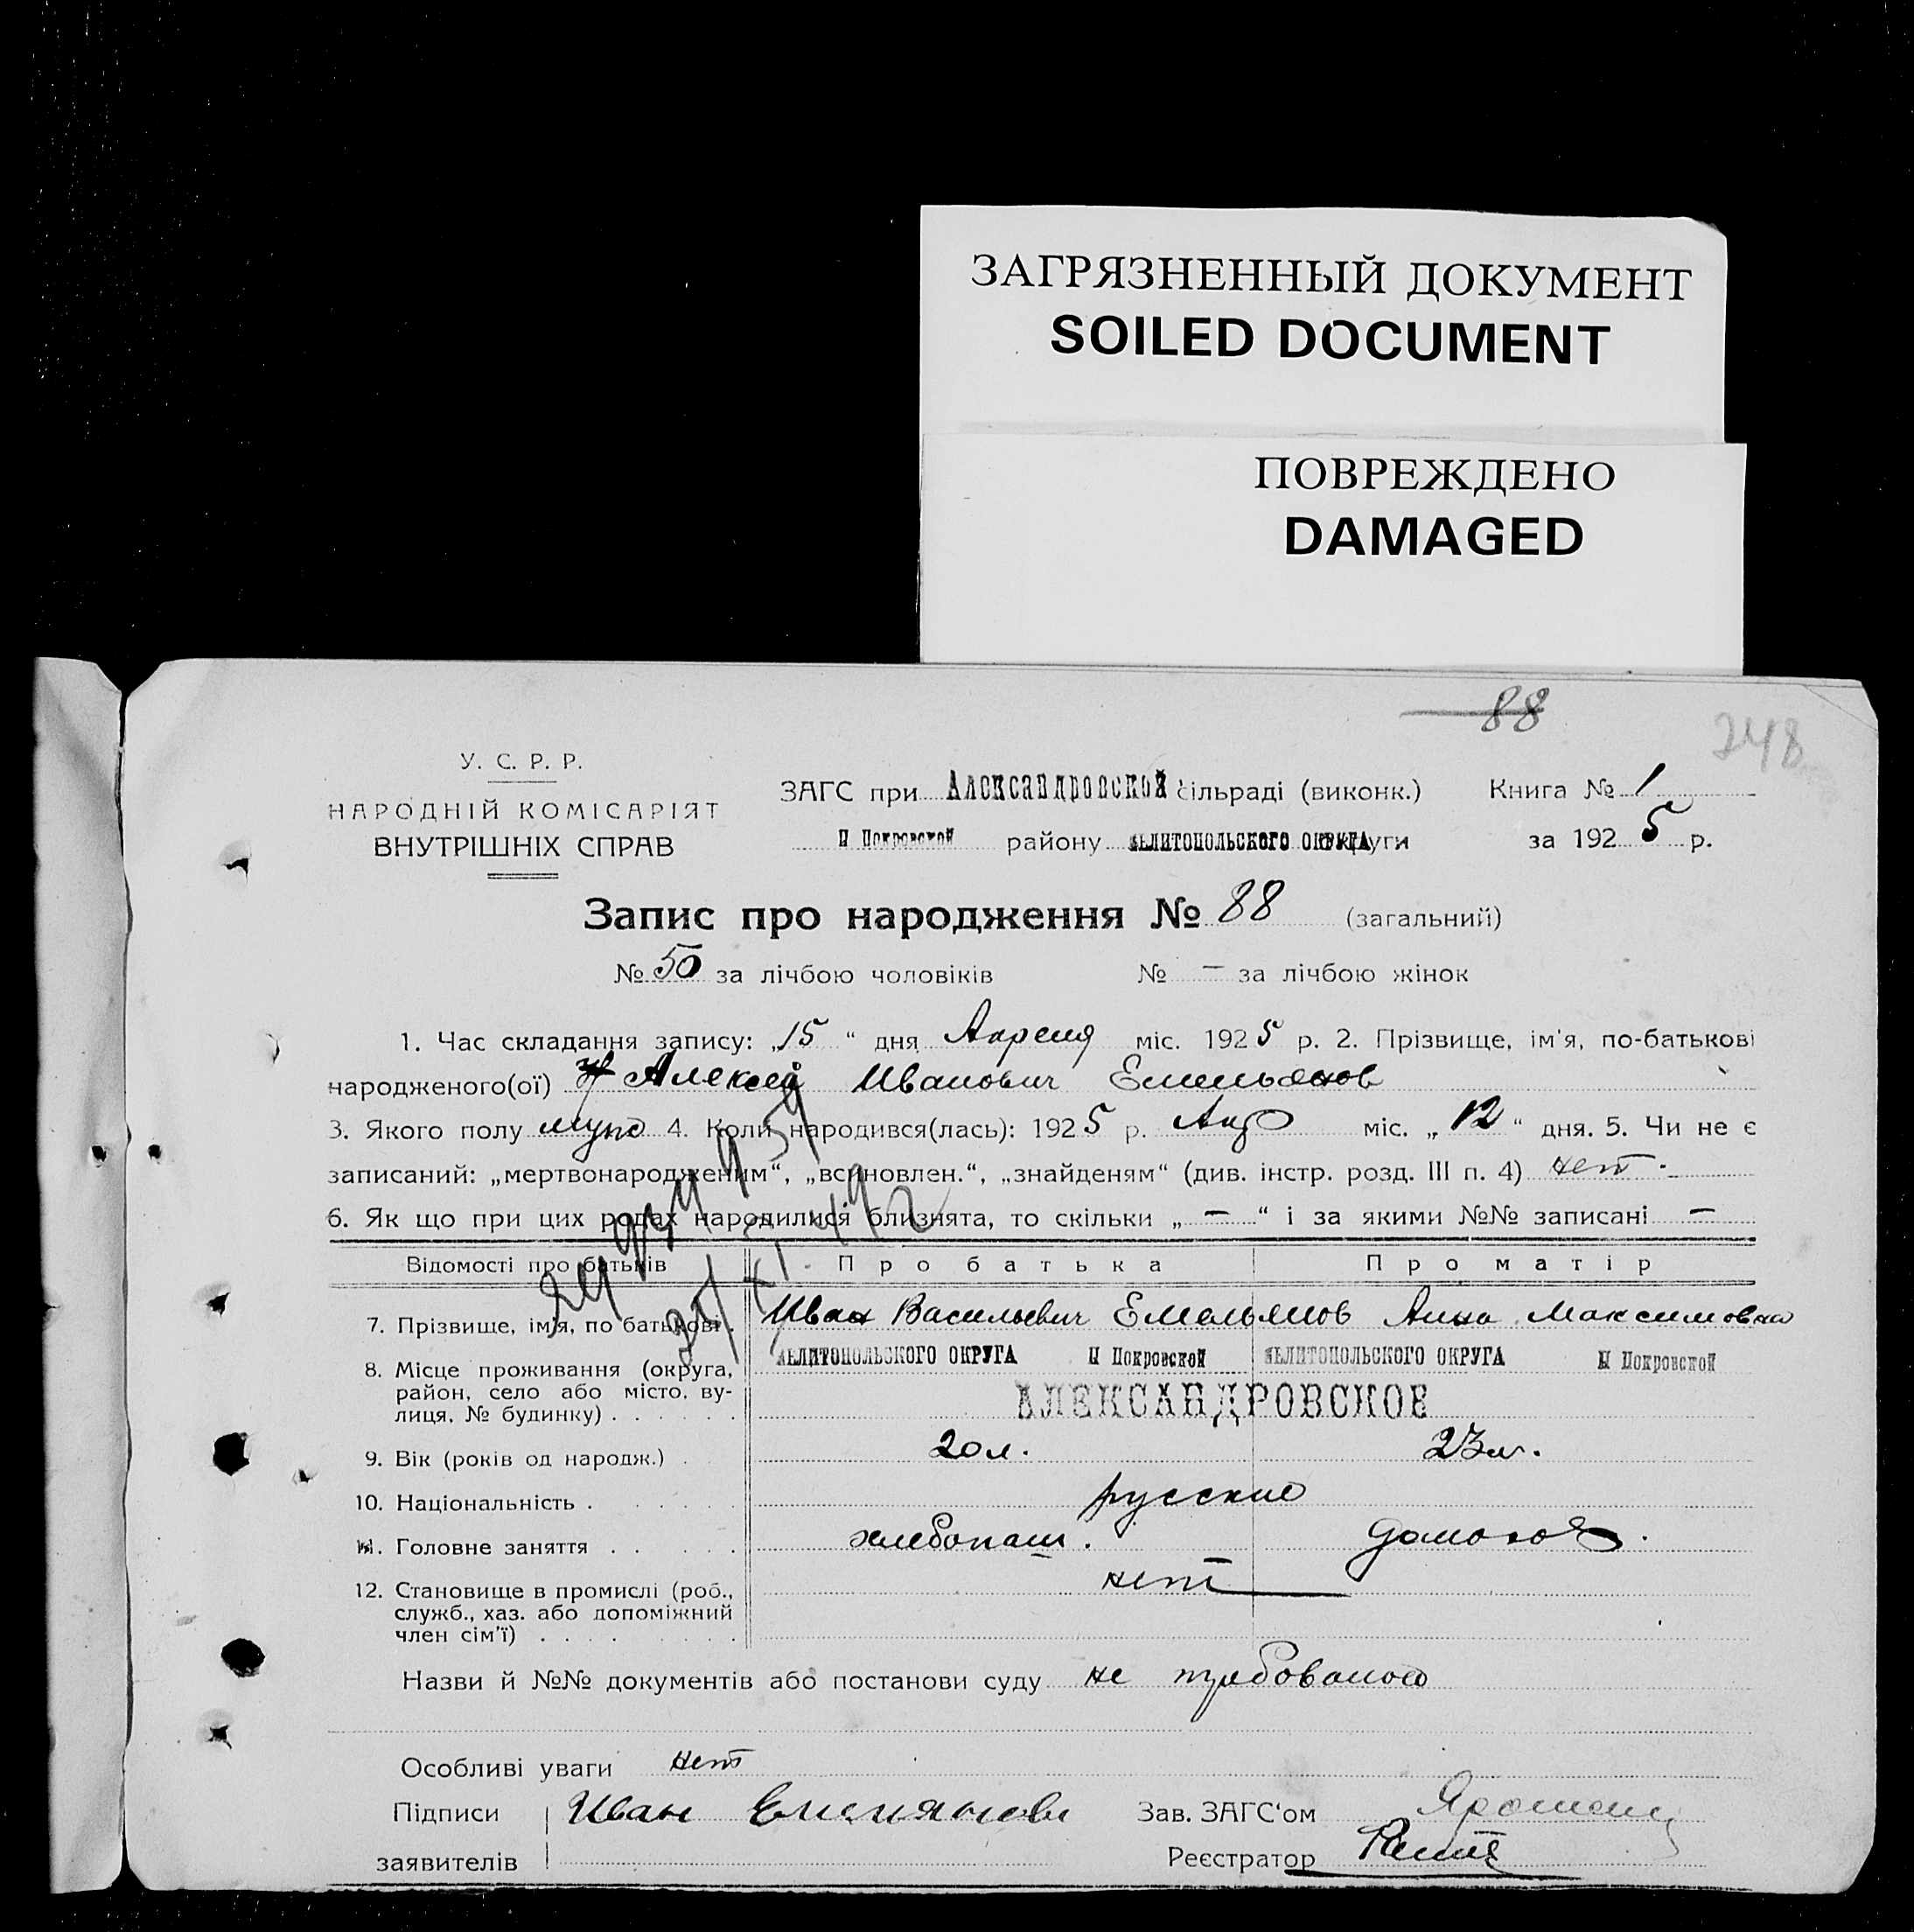 ЗАГРЯЗНЕННЫЙ ДОКУМЕНТ
SOILED DOCUMENT
ПОВРЕЖДЕНО
DAMAGED
88
248
У. С. Р. Р.
НАРОДНІЙ КОМІСАРІЯТ
ВНУТРІШНІХ СПРАВ
ЗАГС при Александровской сільраді (виконк.) Книга № 1
Н Покровской району МЕЛИТОПОЛЬСКОГО ОКРУГА округи за 1925 р.
Запис про народження № 88 (загальний)
№ 50 за лічбою чоловіків № — за лічбою жінок
1. Час складання запису: „15“ дня Апреля міс. 1925 р. 2. Прізвище, ім'я, по-батькові
народженого(ої) Алексей Иванович Емельянов
3. Якого полу муж 4. Коли народився(лась): 1925 р. Апр міс. „12“ дня. 5. Чи не є
записаний: „мертвонародженим“, „всиновлен.“, „знайденям“ (див. інстр. розд. III п. 4) нет.
6. Як що при цих родах народилися близнята, то скільки „—“ і за якими №№ записані —
Відомості про батьків Про батька Про матір
7. Прізвище, ім'я, по батькові. Иван Васильевич Емельянов Анна Максимовна
8. Місце проживання (округа, район, село або місто, вулиця, № будинку) МЕЛИТОПОЛЬСКОГО ОКРУГА Н Покровской МЕЛИТОПОЛЬСКОГО ОКРУГА Н Покровской
АЛЕКСАНДРОВСКОЕ
9. Вік (років од народж.) 20 л. 23 л.
10. Національність русские
11. Головне заняття хлебопаш. домохоз.
12. Становище в промислі (роб., служб., хаз. або допоміжний член сім'ї) нет
Назви й №№ документів або постанови суду не требовалось
Особливі уваги нет
Підписи Иван Зав. ЗАГС'ом
заявителів Реєстратор